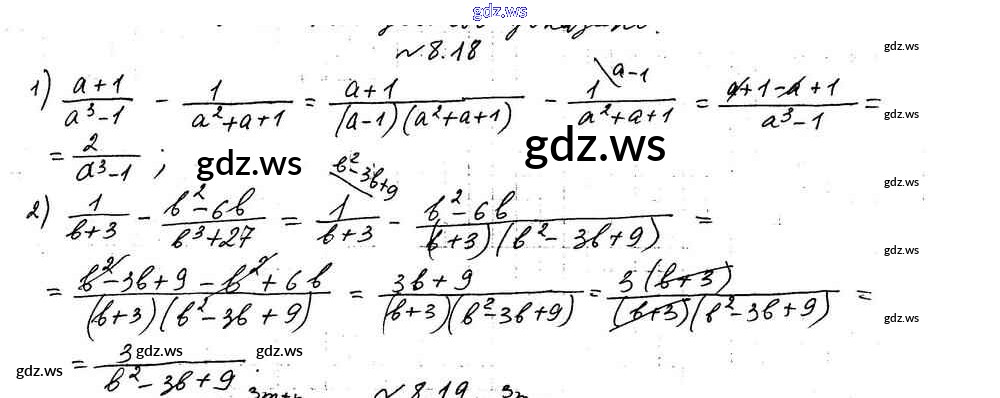 gdz.ws
№ 8.18
gdz.ws
1) (a+1)/(a³-1) - 1/(a²+a+1) = (a+1)/((a-1)(a²+a+1)) - 1\a-1/(a²+a+1) = (a+1-a+1)/(a³-1) =
gdz.ws
= 2/(a³-1) ;
gdz.ws
gdz.ws
gdz.ws
gdz.ws
2) 1/(b+3) - (b²-6b)/(b³+27) = 1\b²-3b+9/(b+3) - (b²-6b)/((b+3)(b²-3b+9)) =
gdz.ws
= (b²-3b+9-b²+6b)/((b+3)(b²-3b+9)) = (3b+9)/((b+3)(b²-3b+9)) = 3(b+3)/((b+3)(b²-3b+9)) =
gdz.ws
= 3/(b²-3b+9)
gdz.ws
gdz.ws
gdz.ws
№ 8.19